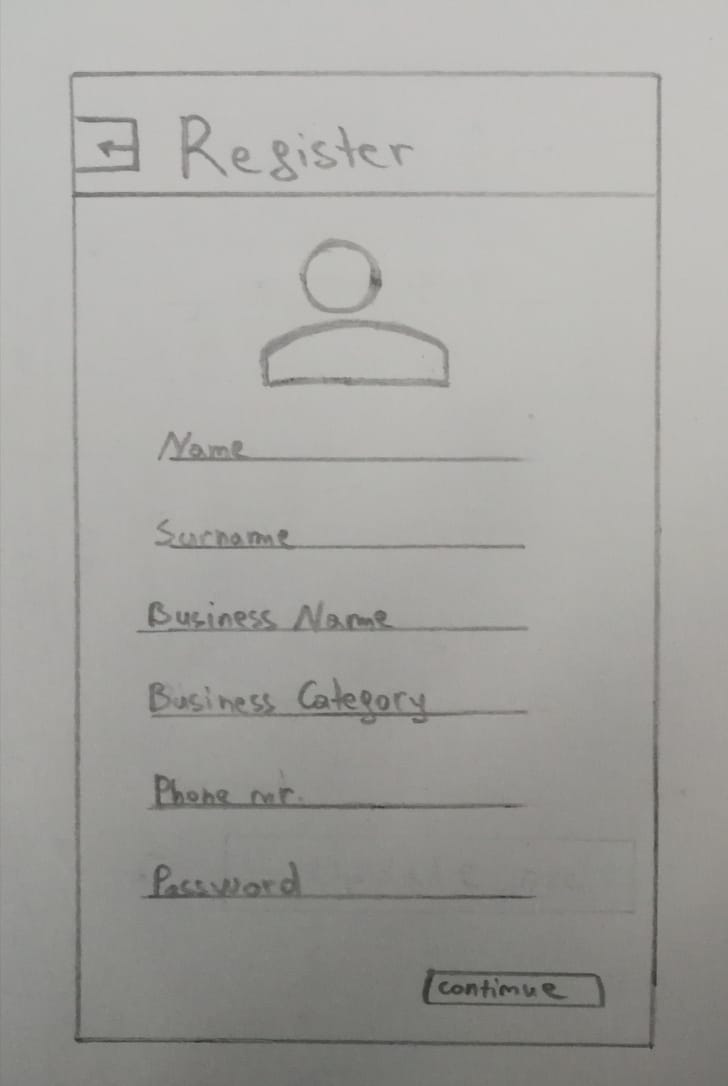 Register
Name
Surname
Business Name
Business Category
Phone nr.
Password
continue